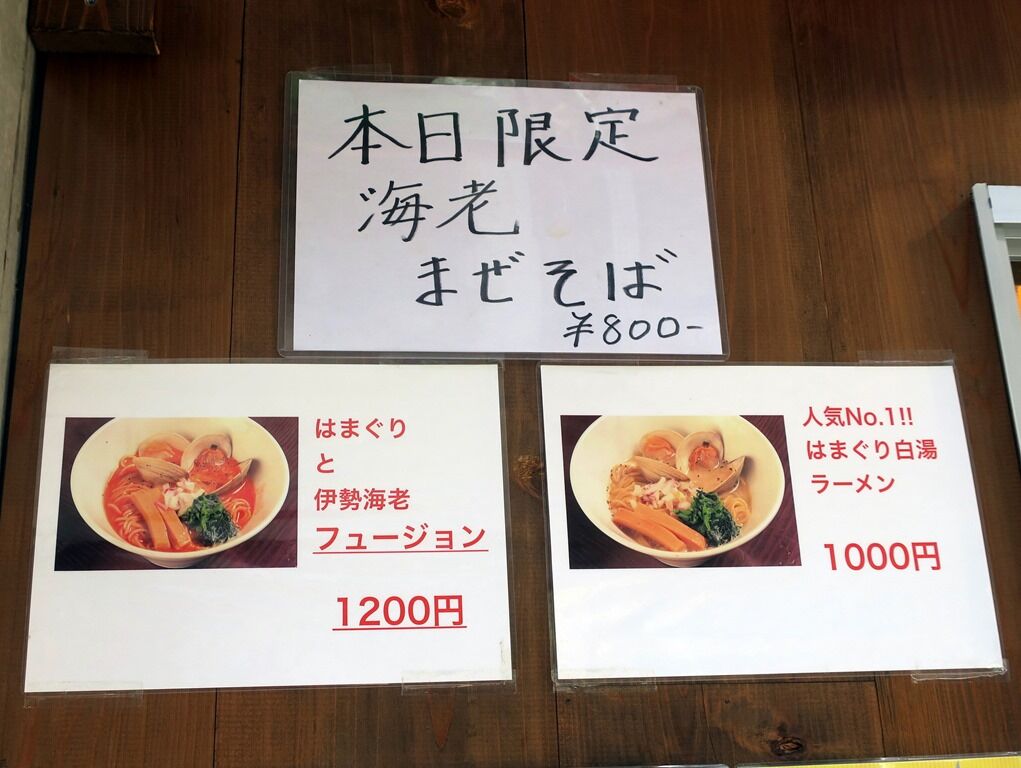 本日限定
海老
まぜそば
¥800-
はまぐり
と
伊勢海老
フュージョン
1200円
人気No.1!!
はまぐり白湯
ラーメン
1000円